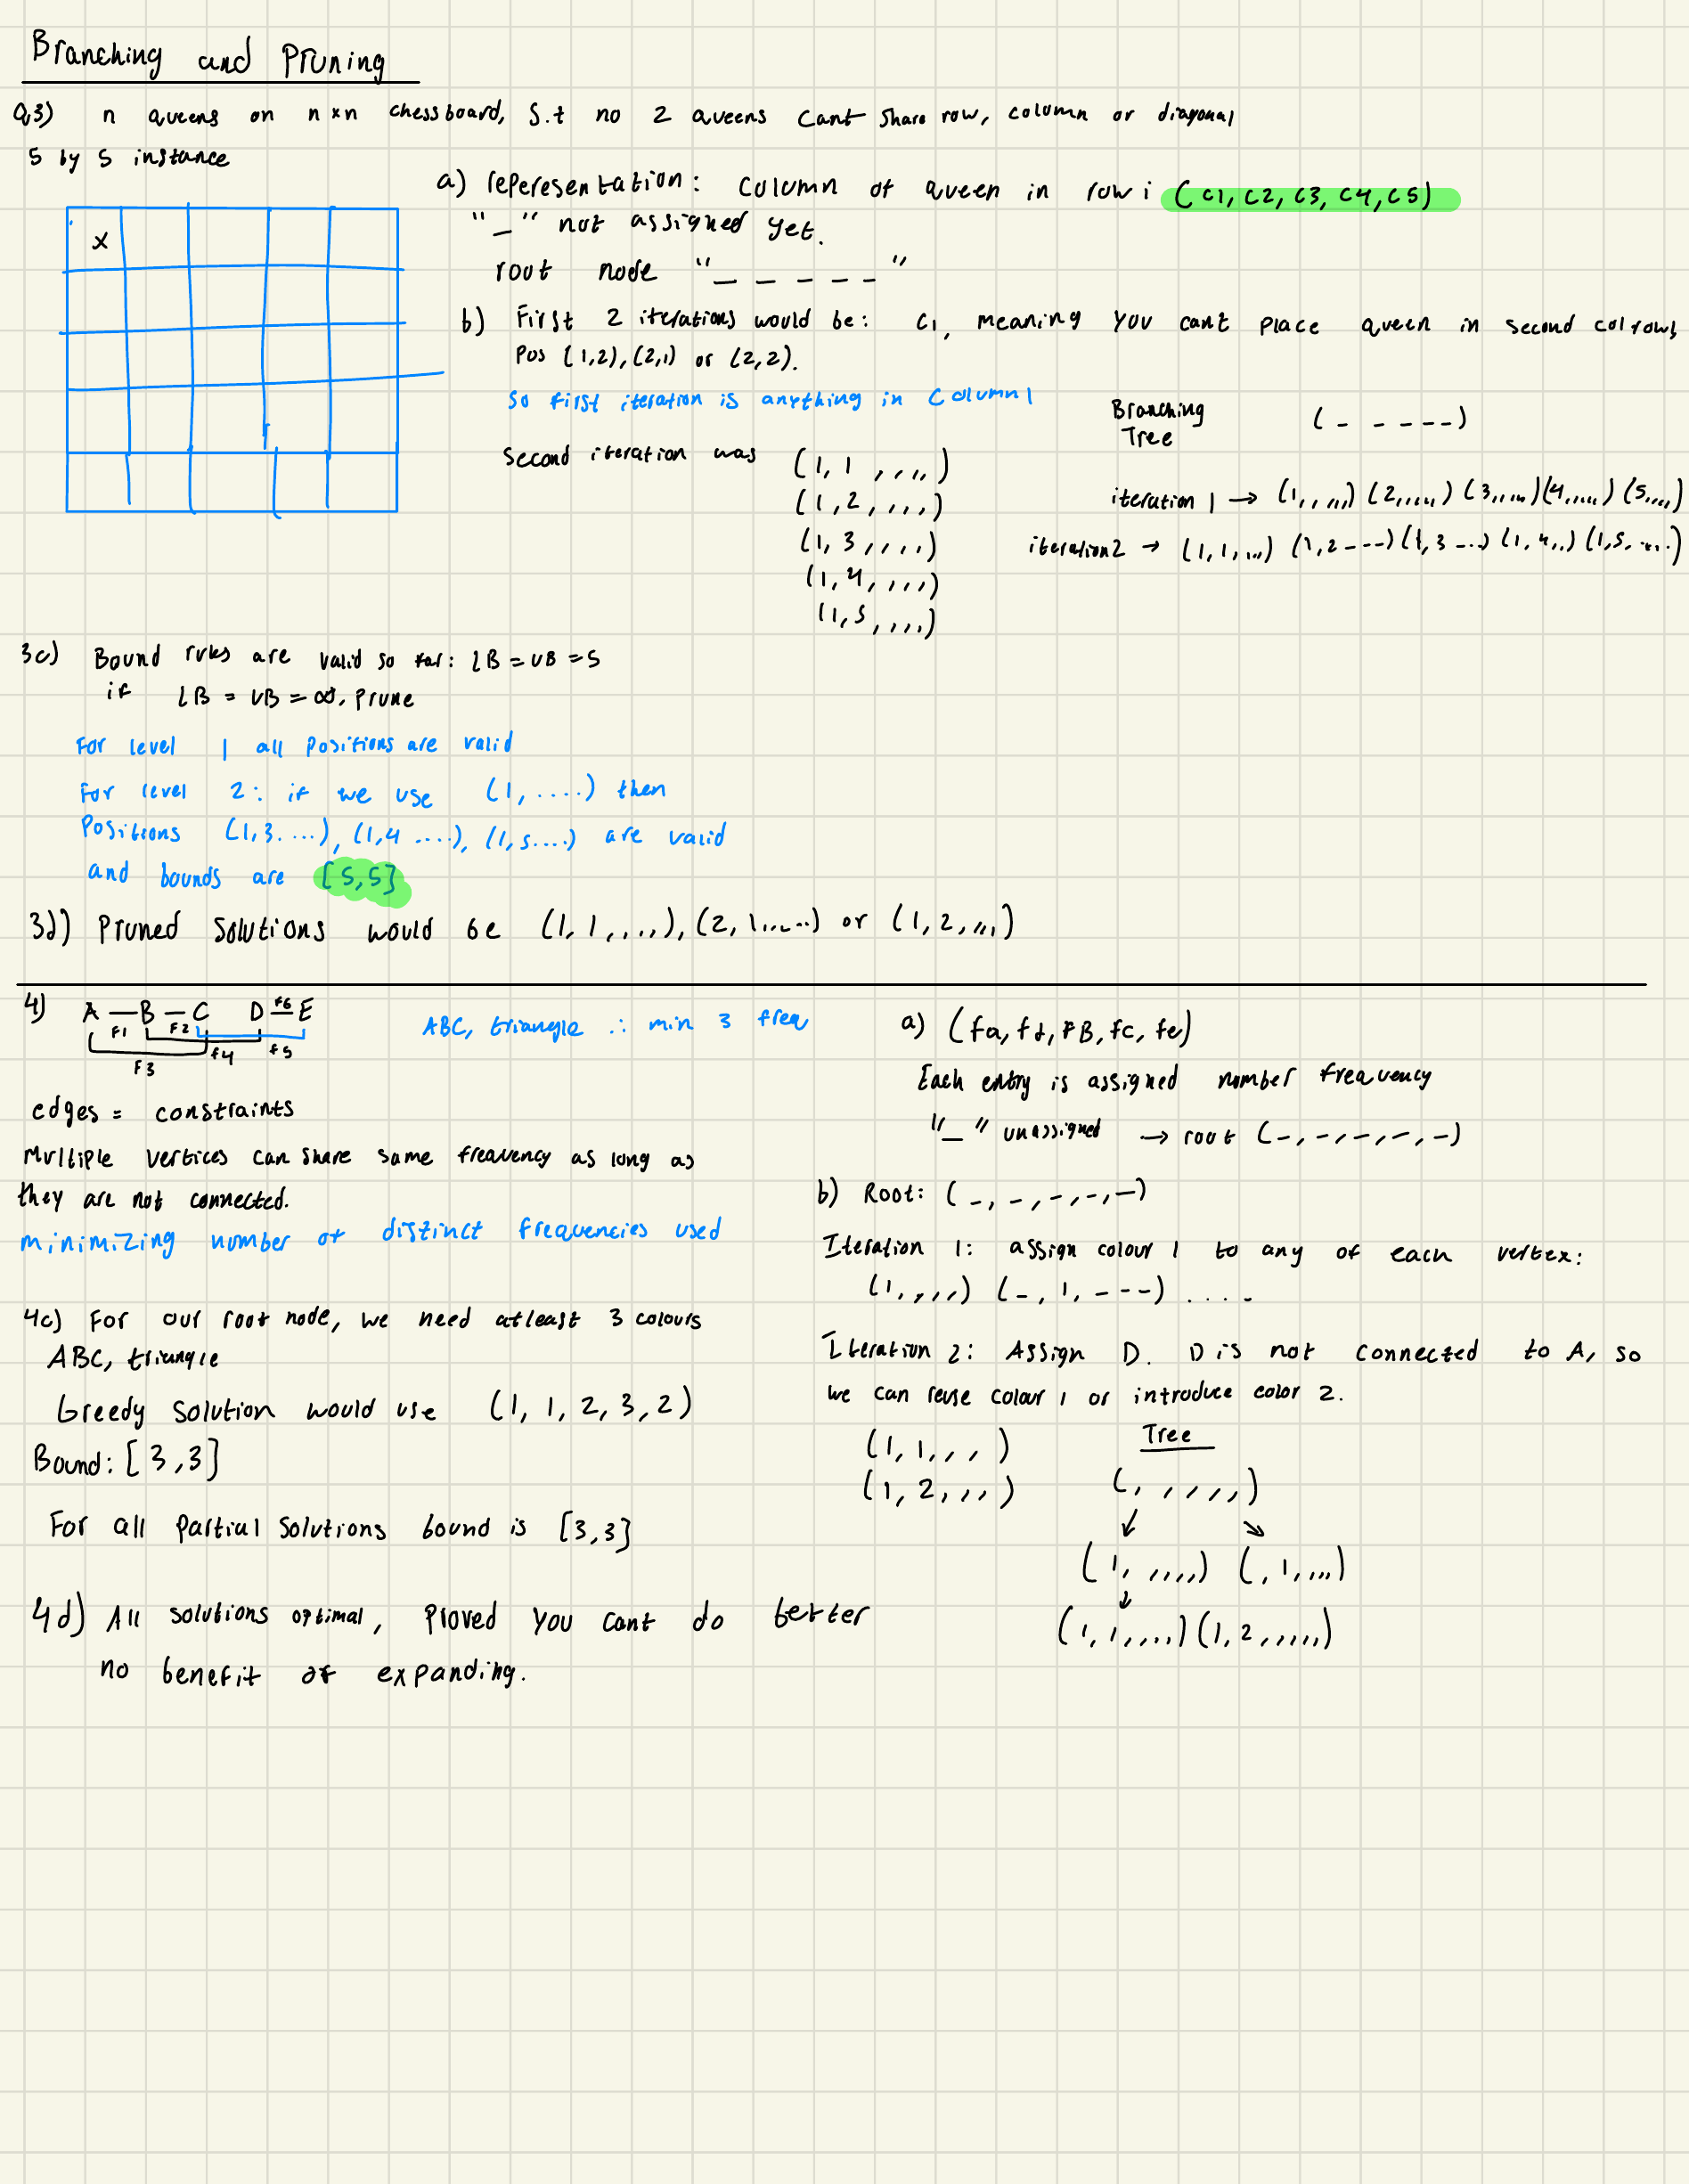 Branching and Pruning
Q3) n queens on n x n chessboard, S.t no 2 queens cant share row, column or diagonal
5 by 5 instance
x
a) reperesentation: column of queen in row i (c1, c2, c3, c4, c5)
"_" not assigned yet.
root node "_ _ _ _ _"
b) First 2 iterations would be: c1, meaning you cant place queen in second col rows
Pos (1,2), (2,1) or (2,2).
So first iteration is anything in Column 1
Second iteration was (1, 1 , , , , )
(1, 2 , , , , )
(1, 3 , , , , )
(1, 4 , , , , )
(1, 5 , , , , )
Branching Tree (_ _ _ _ _)
iteration 1 → (1,,,,,) (2,,,,,) (3,,,,,) (4,,,,,) (5,,,,)
iteration2 → (1,1,,...) (1,2 _ _ _) (1,3 ....) (1,4,..) (1,5, ....)
3c) Bound rules are valid so far: LB = UB = 5
if LB = UB = ∞, Prune
For level 1 all positions are valid
For level 2: if we use (1, ....) then
Positions (1,3. ...), (1,4 ....), (1,5....) are valid
and bounds are [5,5]
3d) Pruned Solutions would be (1, 1 , , , ,), (2, 1,,_...) or (1, 2, ,,,)
4) A — B — C D f6 E
F1 F2 F3 f4 f5
ABC, triangle ∴ min 3 freq
edges = constraints
Multiple vertices can share same frequency as long as
they are not connected.
minimizing number of distinct frequencies used
a) (fa, fd, FB, fc, fe)
Each entry is assigned number frequency
"_" unassigned → root (-, -, -, -, -)
b) Root: (-, -, -, -, -)
Iteration 1: assign colour 1 to any of each vertex:
(1, , , ,) (_, 1, _ _ _) . . . .
Iteration 2: Assign D. D is not connected to A, so
we can reuse colour 1 or introduce color 2.
(1, 1, , , )
(1, 2, , , )
Tree
(, , , , ,)
(1, , , , ,) (, 1, , , ,)
(1, 1, , , ,) (1, 2 , , , , ,)
4c) For our root node, we need atleast 3 colours
ABC, triangle
Greedy Solution would use (1, 1, 2, 3, 2)
Bound: [3,3]
For all Partial Solutions bound is [3,3]
4d) All solutions optimal, Proved you cant do better
no benefit of expanding.